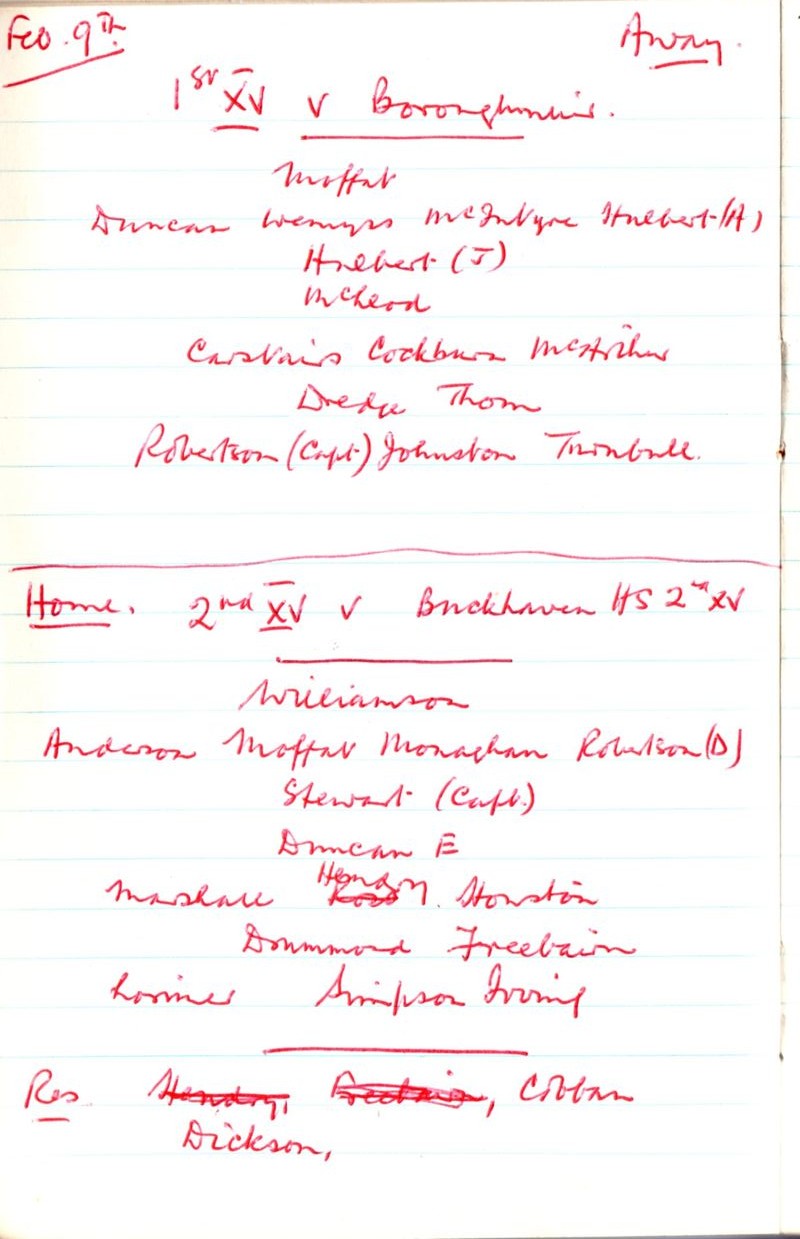 Feb. 9th Away.
1st XV v Boroughmuir.
Moffat
Duncan Wemyss McIntyre Hulbert (A)
Hulbert (J)
McLeod
Carstairs Cockburn McArthur
Dredge Thom
Robertson (Capt) Johnston Turnbull.
Home. 2nd XV v Buckhaven HS 2nd XV
Williamson
Anderson Moffat Monaghan Robertson (D)
Stewart (Capt.)
Duncan E
Hendry
Marshall Ross Houston
Drummond Freebairn
Lorimer Simpson Irving
Res Hendry, Freebairn, Cobban
Dickson,